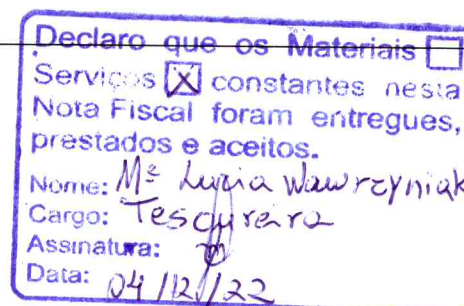 Declaro que os Materiais ☐
Serviços ☒ constantes nesta
Nota Fiscal foram entregues,
prestados e aceitos.
Nome: Mª Luzia Wawrzyniak
Cargo: Tesoureira
Assinatura:
Data: 04/12/22